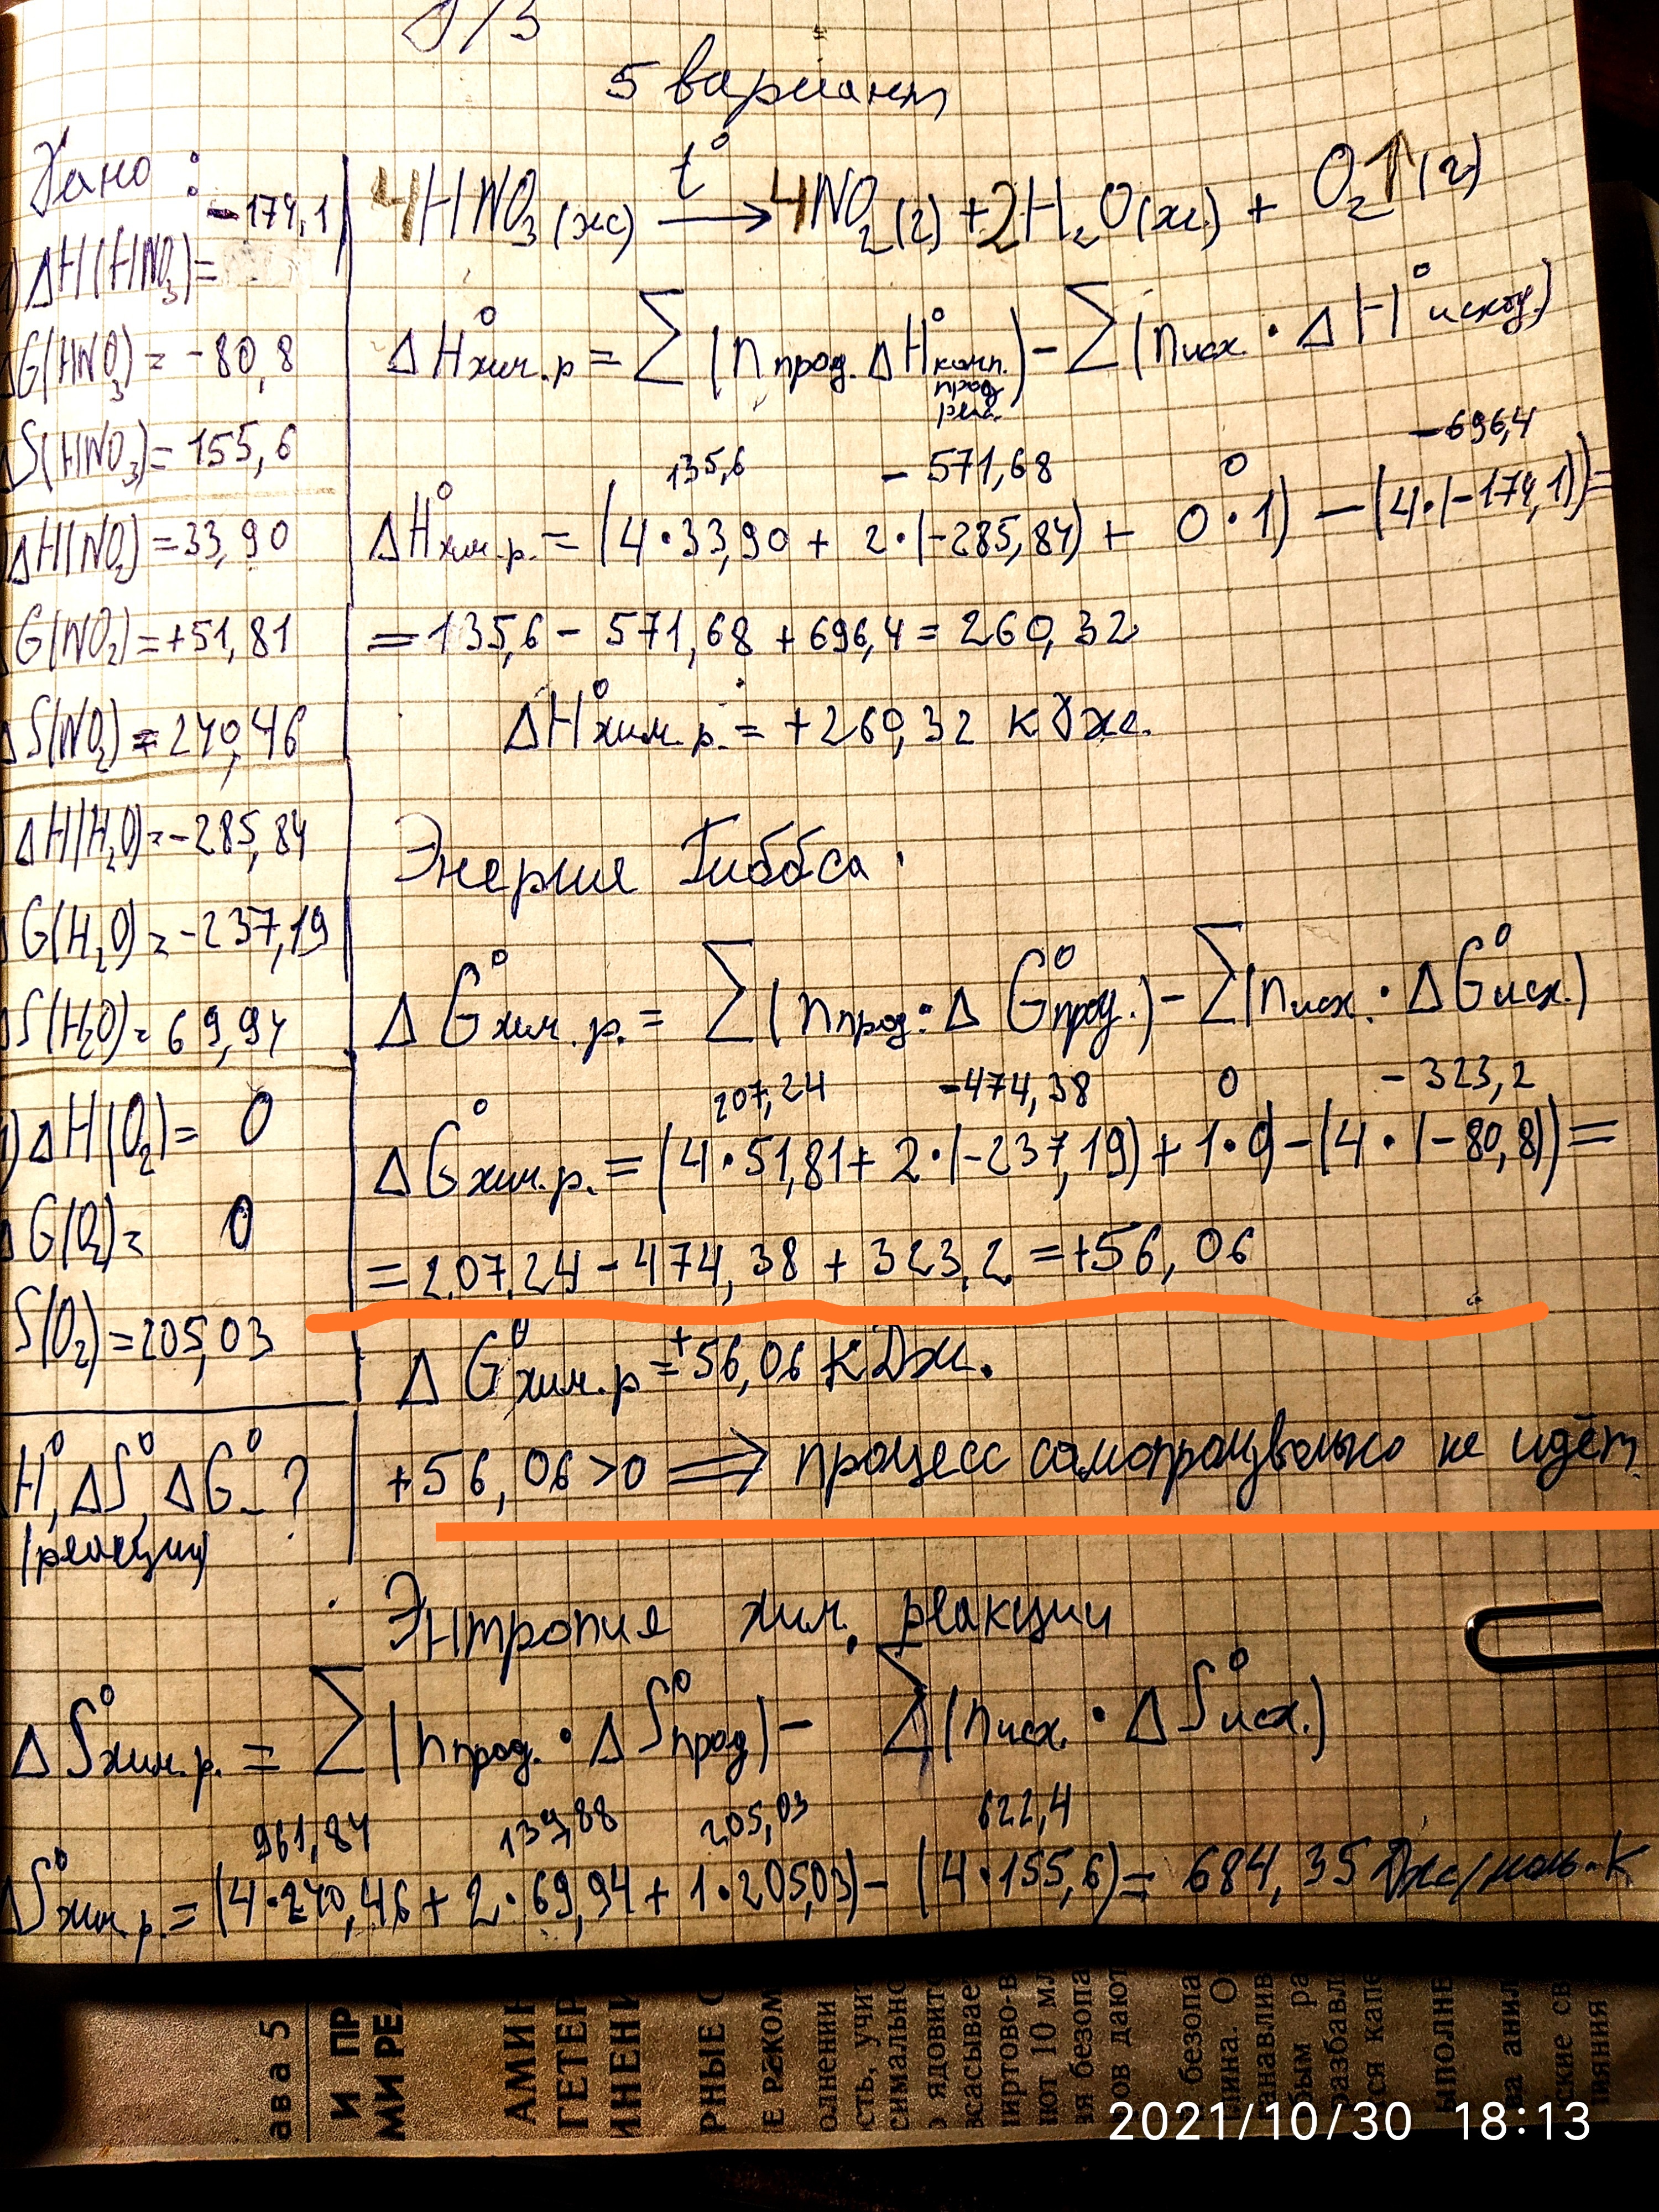 Д/З
5 вариант
Дано :
-174,1
ΔH(HNO₃)=
ΔG(HNO₃)= -80,8
ΔS(HNO₃)= 155,6
ΔH(NO₂)=33,90
G(NO₂)=+51,81
ΔS(NO₂)=240,46
ΔH(H₂O)=-285,84
ΔG(H₂O)=-237,19
ΔS(H₂O)=69,94
ΔH(O₂)= 0
ΔG(O₂)= 0
S(O₂)=205,03
H°, ΔS°, ΔG°- ?
(реакции)
4HNO₃(ж) t° → 4NO₂(г)+2H₂O(ж) + O₂↑(г)
ΔH°хим.р = Σ(nпрод. ΔH°комп. прод. реак.)-Σ(nисх. · ΔH°исход.)
135,6 - 571,68 0 -696,4
ΔH°хим.р.= (4·33,90 + 2·(-285,84) + 0·1) - (4·(-174,1))=
=135,6- 571,68+696,4=260,32
ΔH°хим.р.= +260,32 кДж.
Энергия Гиббса.
ΔG°хим.р.= Σ(nпрод.·ΔG°прод.)-Σ(nисх.·ΔG°исх.)
207,24 -474,38 0 - 323,2
ΔG°хим.р.=(4·51,81+ 2·(-237,19)+1·0)-(4·(-80,8))=
=207,24-474,38+323,2=+56,06
ΔG°хим.р=+56,06 кДж.
+56,06>0 ⟹ процесс самопроизвольно не идёт
Энтропия хим. реакции
ΔS°хим.р.= Σ(nпрод.·ΔS°прод)- Σ(nисх.·ΔS°исх.)
961,84 139,88 205,03 622,4
ΔS°хим.р.=(4·240,46+2·69,94+1·205,03)-(4·155,6)= 684,35 Дж/моль·К
ава 5
И ПР
МИ РЕ
АМИН
ГЕТЕР
ИНЕНИ
РНЫЕ С
олнении
сть, учит
симально
о ядовито
всасывае
пиртово-в
ют 10 мл
ия безопа
ов дают
безопа
лина. О
анавлив
бым ра
разбавл
ся капе
ыполне
ва анил
ские св
2021/10/30 18:13